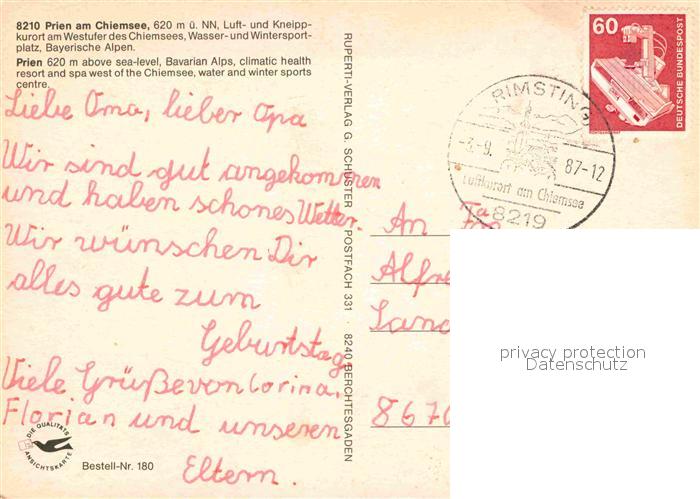 8210 Prien am Chiemsee, 620 m ü. NN, Luft- und Kneipp-
kurort am Westufer des Chiemsees, Wasser- und Wintersport-
platz, Bayerische Alpen.
Prien 620 m above sea-level, Bavarian Alps, climatic health
resort and spa west of the Chiemsee, water and winter sports
centre.
Liebe Oma, lieber Opa
Wir sind gut angekommen
und haben schönes Wetter.
Wir wünschen Dir
alles gute zum
Geburtstag
Viele Grüße von Corina,
Florian und unseren
Eltern.
DIE QUALITÄTS
ANSICHTSKARTE
Bestell-Nr. 180
RUPERTI-VERLAG G. SCHUSTER · POSTFACH 331 · 8240 BERCHTESGADEN
60
DEUTSCHE BUNDESPOST
RIMSTING
9.
87-12
Luftkurort am Chiemsee
8219
An
Alfre
Land
8670
privacy protection
Datenschutz